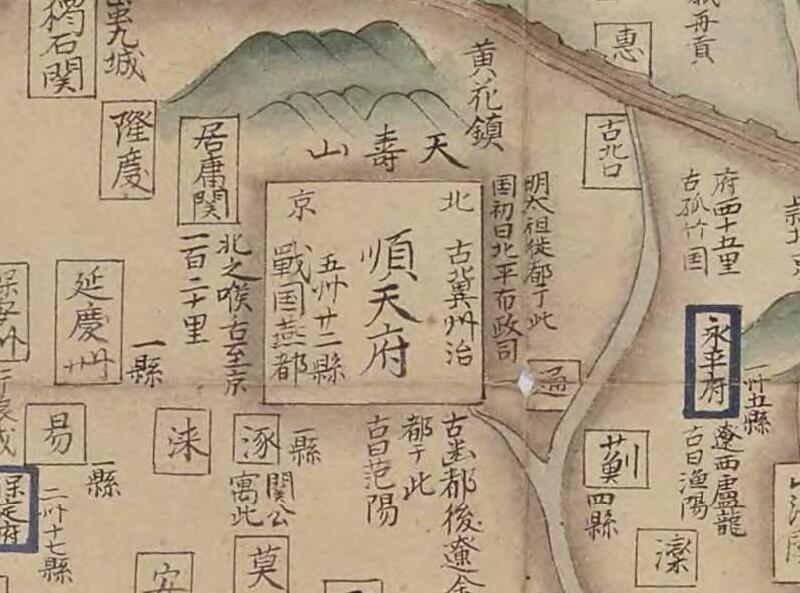 獨石関
九城
隆慶
居庸関
北之喉古至京
一百二十里
黄花鎮
天壽山
惠
再貢
古北口
明太祖徙都于此
国初曰北平布政司
北京
古兾州治
順天府
五州廿二縣
戰国燕都
府西十五里
古孤竹国
永平府
一州五縣
遼西盧龍
古曰漁陽
通
薊
四縣
灤
延慶州
一縣
保安州
易
一縣
涞
涿
一縣
関公
寓此
古幽都後遼金
都于此
古曰范陽
保定府
二州十七縣
安
莫